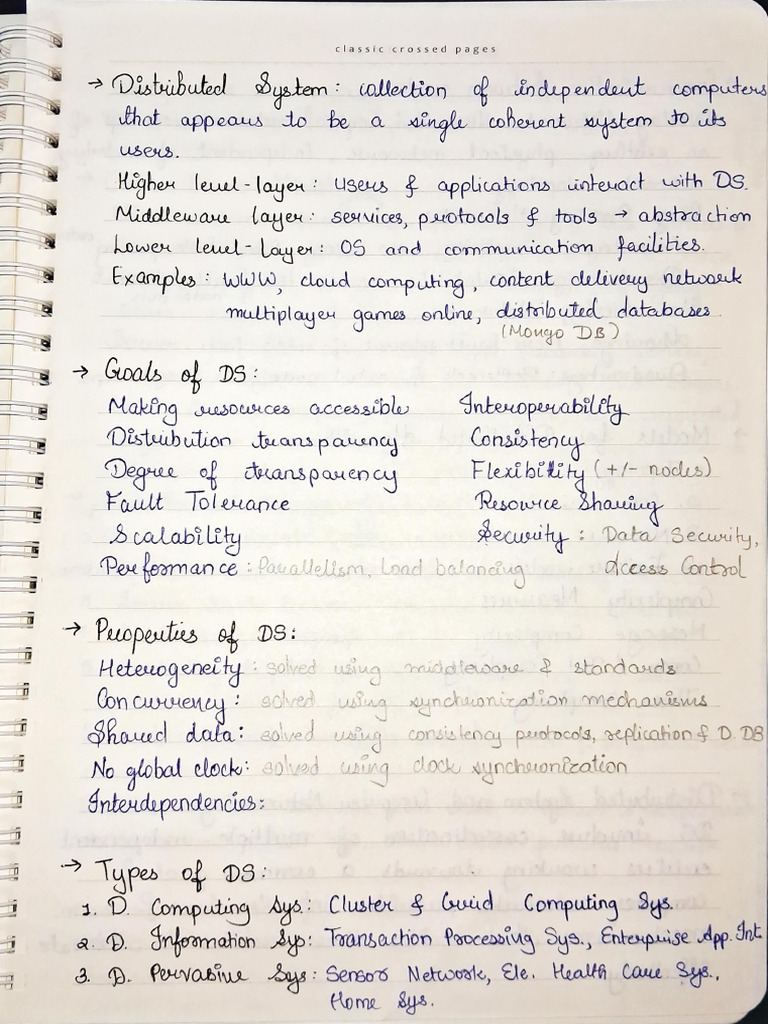 classic crossed pages
→ Distributed System: collection of independent computers
that appears to be a single coherent system to its
users.
Higher level-layer: users & applications interact with DS.
Middleware layer: services, protocols & tools → abstraction
Lower level-layer: OS and communication facilities.
Examples: WWW, cloud computing, content delivery network
multiplayer games online, distributed databases
(Mongo DB)
→ Goals of DS:
Making resources accessible Interoperability
Distribution transparency Consistency
Degree of transparency Flexibility (+/- nodes)
Fault Tolerance Resource Sharing
Scalability Security: Data Security,
Performance: Parallelism, Load balancing Access Control
→ Properties of DS:
Heterogeneity: solved using middleware & standards
Concurrency: solved using synchronization mechanisms
Shared data: solved using consistency protocols, replication & D. DB
No global clock: solved using clock synchronization
Interdependencies:
→ Types of DS:
1. D. Computing Sys: Cluster & Grid Computing Sys.
2. D. Information Sys: Transaction Processing Sys., Enterprise App. Int.
3. D. Pervasive Sys: Sensor Network, Ele. Health Care Sys.,
Home Sys.